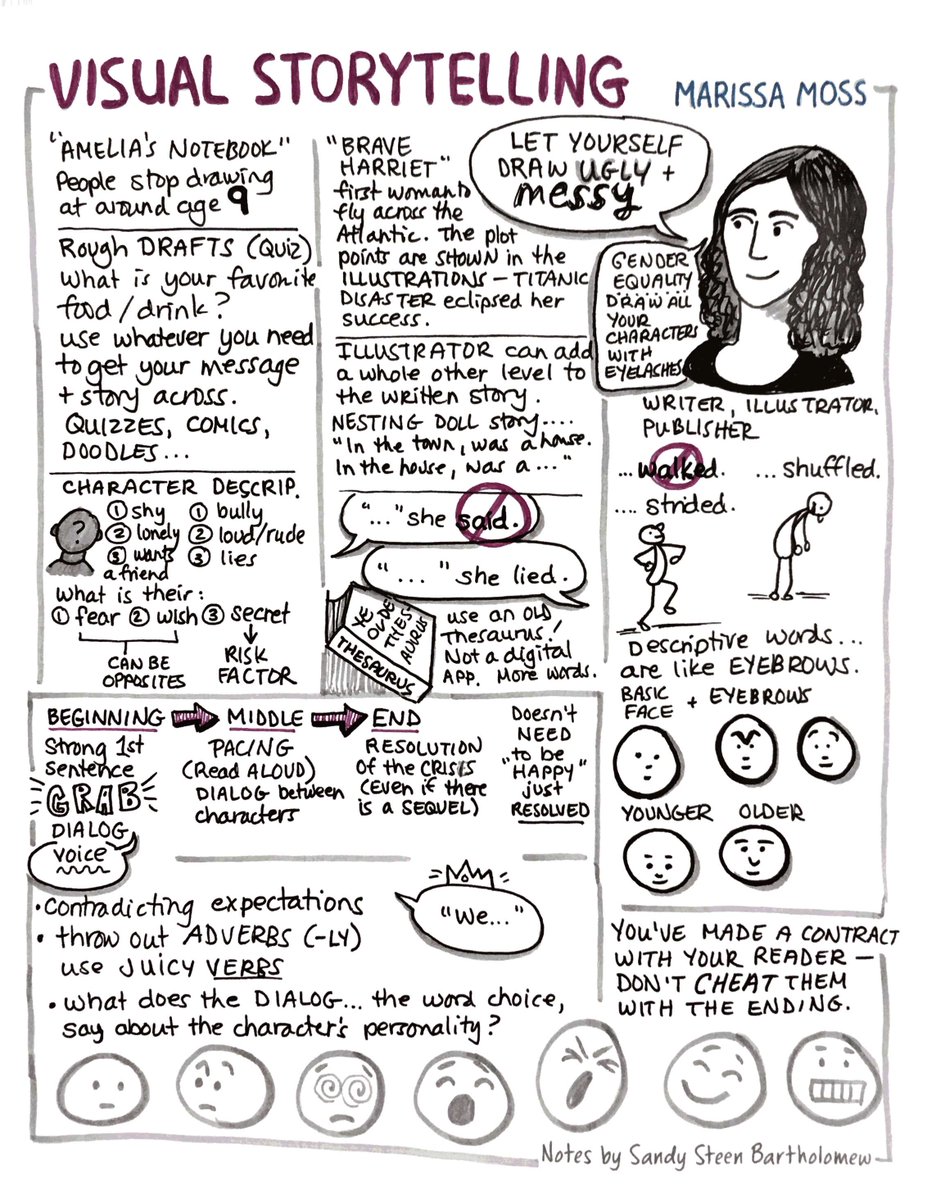 VISUAL STORYTELLING
MARISSA MOSS
"AMELIA'S NOTEBOOK"
People stop drawing
at around age 9
Rough DRAFTS (Quiz)
What is your favorite
food/drink?
use whatever you need
to get your message
+ story across.
QUIZZES, COMICS,
DOODLES...
CHARACTER DESCRIP.
?
① shy
② lonely
③ wants
a friend
① bully
② loud/rude
③ lies
What is their:
① fear ② wish ③ secret
CAN BE
OPPOSITES
RISK
FACTOR
"BRAVE
HARRIET"
first woman to
fly across the
Atlantic. The plot
points are SHOWN in the
ILLUSTRATIONS – TITANIC
DISASTER eclipsed her
success.
ILLUSTRATOR can add
a whole other level to
the written story.
NESTING DOLL story....
"In the town, was a house.
In the house, was a ..."
"..." she said.
"..." she lied.
YE
OLDE
THES-
AURUS
THESAURUS
use an OLD
Thesaurus!
Not a digital
APP. More words.
LET YOURSELF
DRAW UGLY +
messy
GENDER
EQUALITY
DRAW ALL
YOUR
CHARACTERS
WITH
EYELASHES
WRITER, ILLUSTRATOR,
PUBLISHER
... walked. ... shuffled.
.... strided.
Descriptive words...
are like EYEBROWS.
BASIC
FACE + EYEBROWS
YOUNGER OLDER
BEGINNING
Strong 1st
sentence
GRAB
DIALOG
voice
MIDDLE
PACING
(Read ALOUD)
DIALOG between
characters
END
RESOLUTION
of the CRISIS
(EVEN if there
is a SEQUEL)
Doesn't
NEED
"to be
HAPPY"
just
RESOLVED
• Contradicting expectations
• throw out ADVERBS (-LY)
use JUICY VERBS
"We..."
• What does the DIALOG... the word choice,
say about the character's personality?
YOU'VE MADE A CONTRACT
WITH YOUR READER —
DON'T CHEAT THEM
WITH THE ENDING.
Notes by Sandy Steen Bartholomew